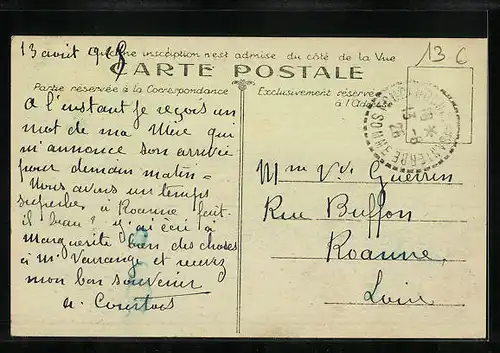 13 août 1928
13 C
Aucune inscription n'est admise du côté de la Vue
CARTE POSTALE
Partie réservée à la Correspondance
Exclusivement réservé
à l'Ad
A l'instant je reçois un
mot de ma Mère qui
m'annonce son arrivée
pour demain matin -
Nous avons un temps
superbe, à Roanne fait-
il beau? j'ai écri à
Marguerite bien des choses
à M. et recevez
mon bon souvenir
a. Courtois
Mme Vve Guerrin
Rue Buffon
Roanne
Loire
13 -8
28
SOMME